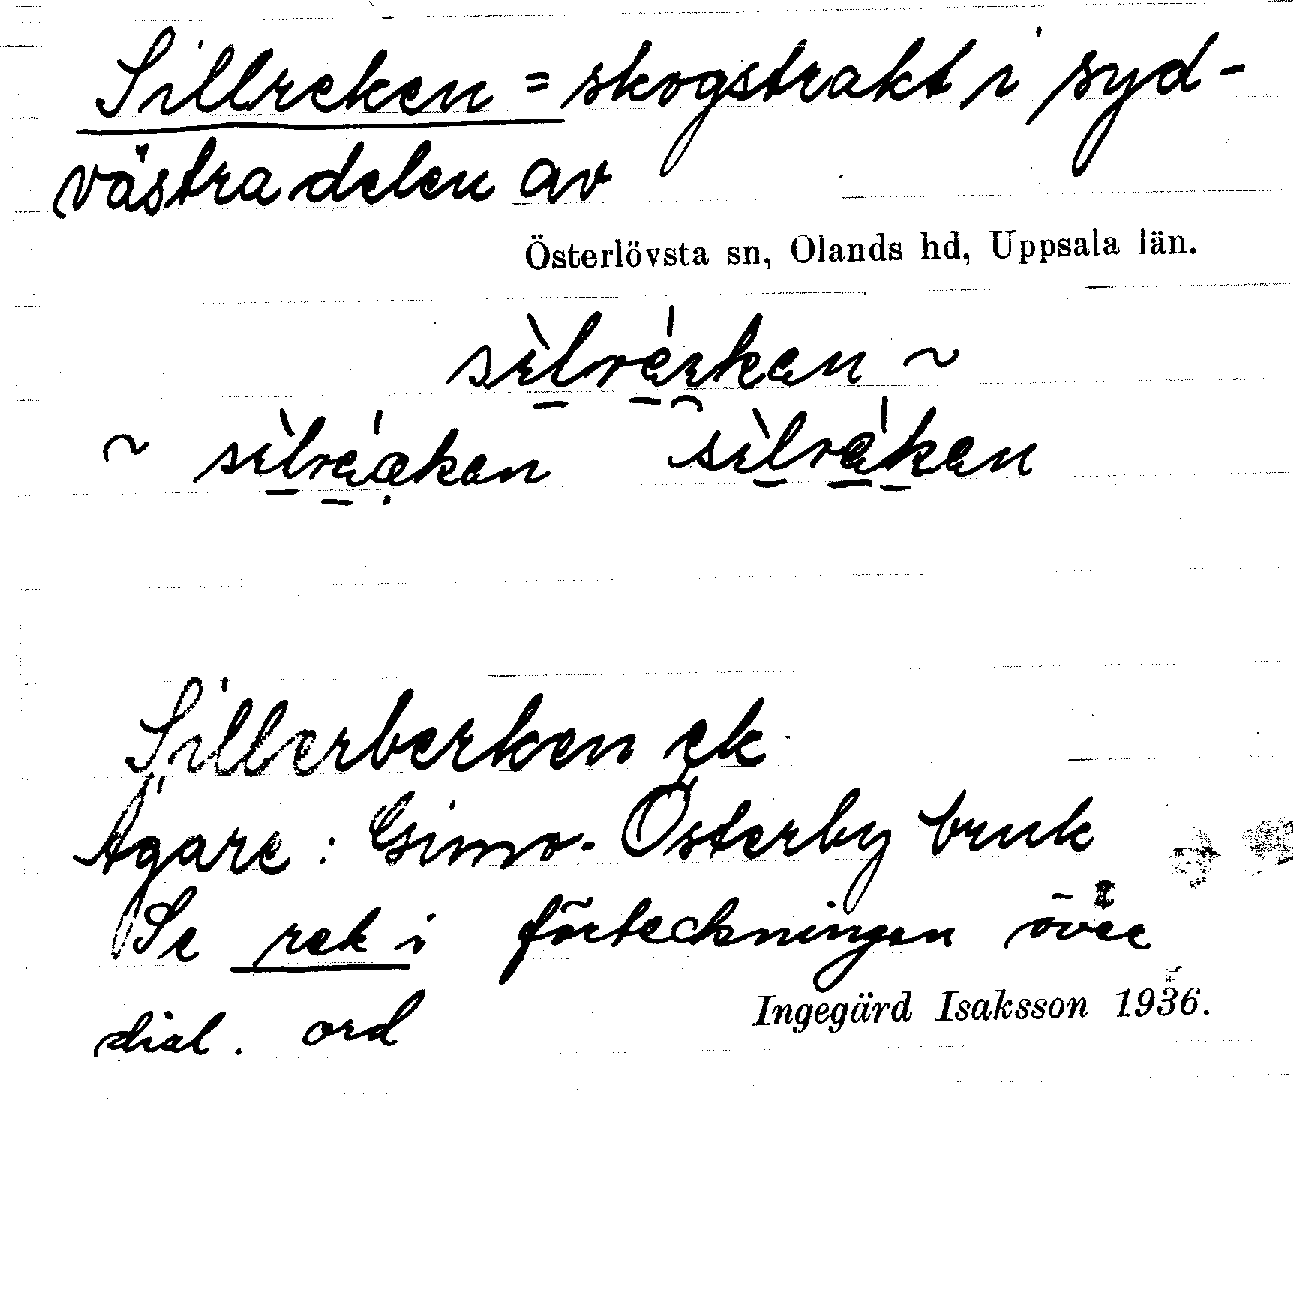 Sillreken = skogstrakt i syd-
västra delen av
Österlövsta sn, Olands hd, Uppsala län.
~
~
Sillerberken ek
Ägare: Gimo-Österby bruk
Se rek i förteckningen över
dial. ord
Ingegärd Isaksson 1936.